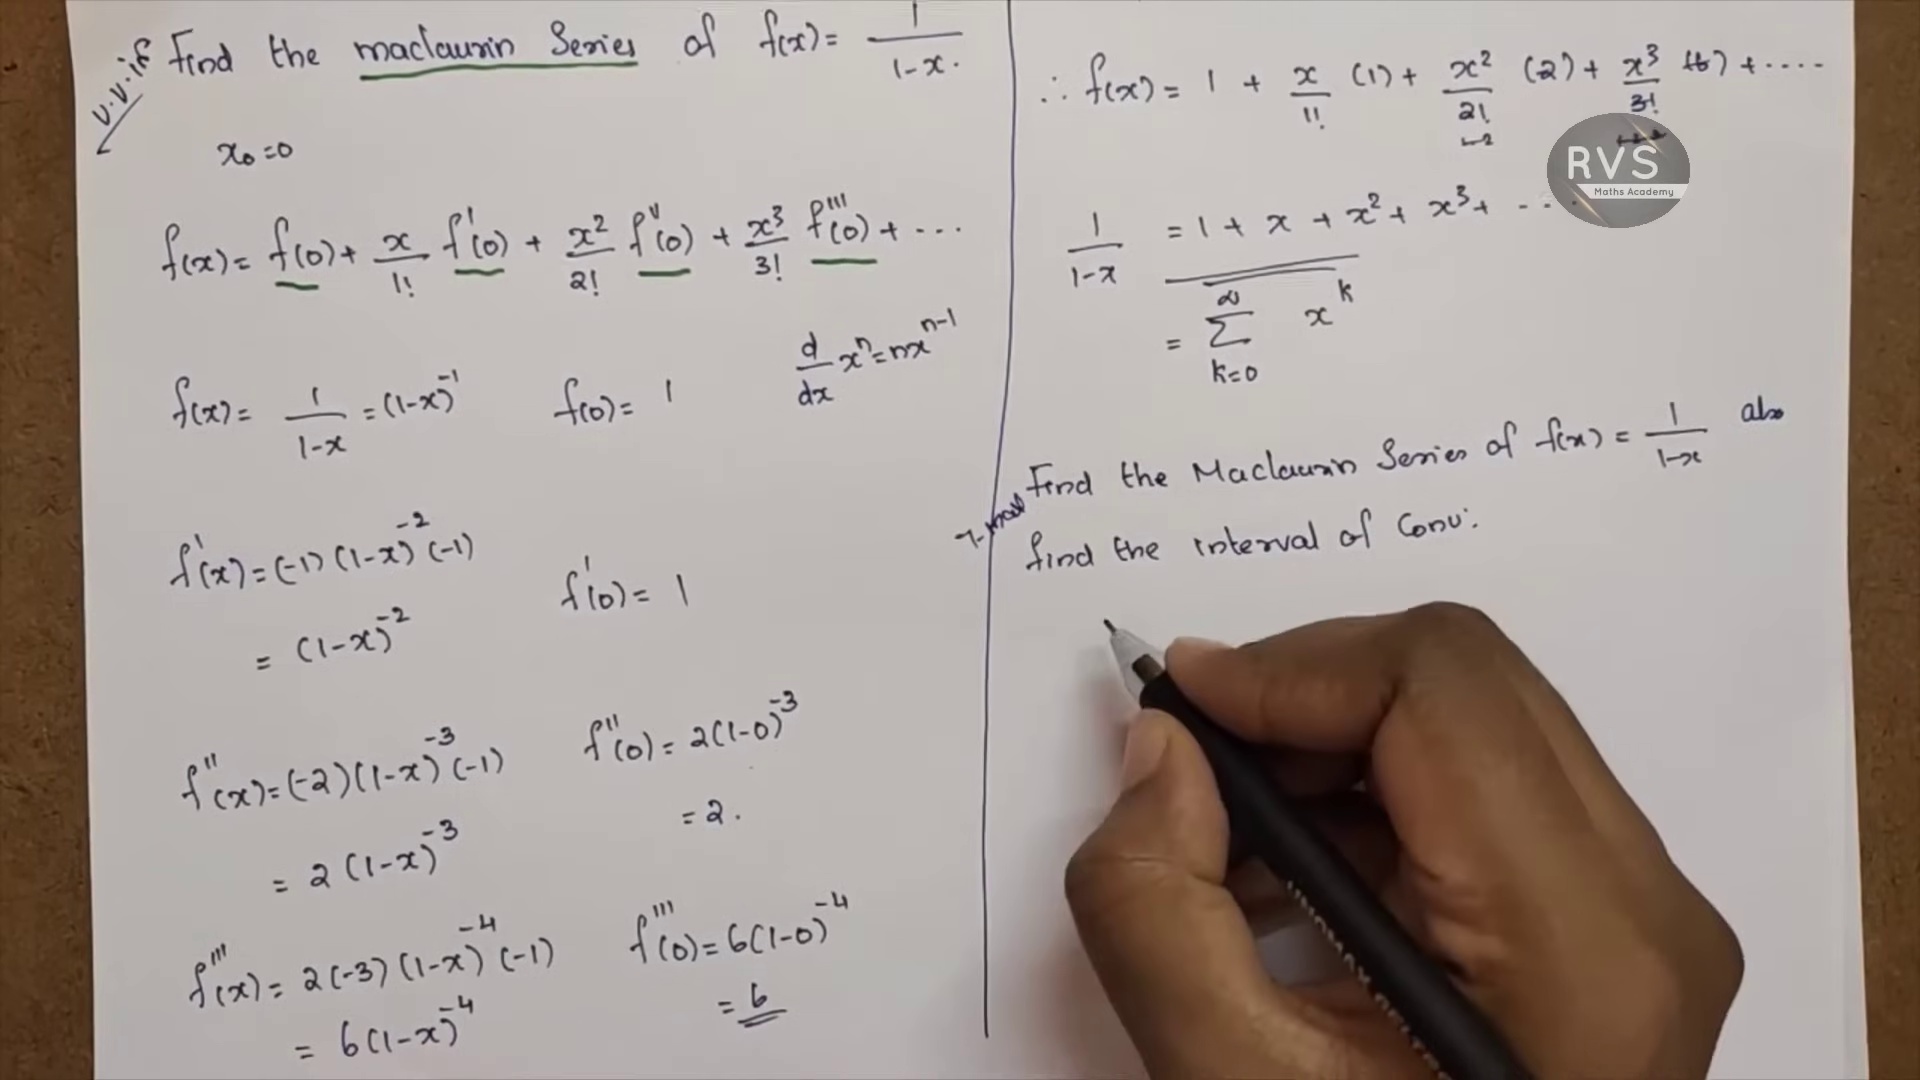 v.v.if Find the maclaurin Series of f(x) = 1/(1-x).
x₀=0
f(x) = f(0) + x/1! f'(0) + x²/2! f''(0) + x³/3! f'''(0) + ...
f(x) = 1/(1-x) = (1-x)⁻¹ f(0) = 1 d/dx xⁿ = nxⁿ⁻¹
f'(x) = (-1) (1-x)⁻² (-1) f'(0) = 1
= (1-x)⁻²
f''(x) = (-2) (1-x)⁻³ (-1) f''(0) = 2(1-0)⁻³
= 2 (1-x)⁻³ = 2.
f'''(x) = 2(-3) (1-x)⁻⁴ (-1) f'''(0) = 6(1-0)⁻⁴
= 6(1-x)⁻⁴ = 6
∴ f(x) = 1 + x/1! (1) + x²/2! (2) + x³/3! (6) + ....
1/(1-x) = 1 + x + x² + x³ + ...
= ∞ Σ k=0 xᵏ
RVS
Maths Academy
7-mark Find the Maclaurin Series of f(x) = 1/(1-x) also
find the interval of Conv: